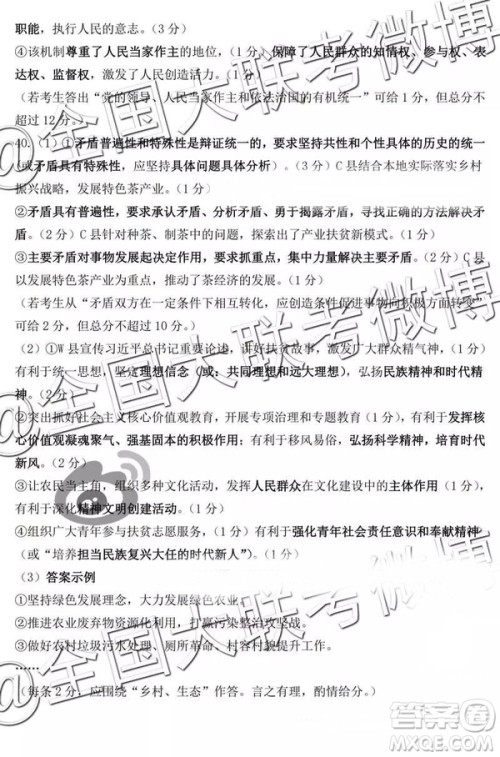 职能，执行人民的意志。（3 分）
④该机制尊重了人民当家作主的地位，（1 分）保障了人民群众的知情权、参与权、表
达权、监督权，激发了人民创造活力。（1 分）
（若考生答出“党的领导、人民当家作主和依法治国的有机统一”可给 1 分，但总分不
超过 12 分。）
40.（1）①矛盾普遍性和特殊性是辩证统一的，要求坚持共性和个性具体的历史的统一
（或矛盾具有特殊性，应坚持具体问题具体分析）。（3 分）C 县结合本地实际落实乡村
振兴战略，发展特色茶产业。（1 分）
②矛盾具有普遍性，要求承认矛盾、分析矛盾，勇于揭露矛盾，用正确的方法解决矛
盾。（2 分）C 县针对种茶、制茶中的问题，探索出了产业扶贫新模式。（1 分）
③主要矛盾对事物发展起决定作用，要求抓重点，集中力量解决主要矛盾。（2 分）C 县
以发展特色茶产业为重点，推动了茶经济的发展。（1 分）
（若考生从“矛盾双方在一定条件下相互转化，应创造条件促进事物向积极方面转变”
可给 2 分，但总分不超过 10 分。）
（2）①W 县宣传习近平总书记重要论述，讲好扶贫故事，激发了广大群众精气神，（1
分）有利于统一思想，坚定理想信念（或：共同理想和远大理想），弘扬民族精神和时代精
神。（2 分）
②突出抓好社会主义核心价值观教育，开展专项治理和专题教育（1 分），有利于发挥核
心价值观凝魂聚气、强基固本的积极作用，（1 分）有利于移风易俗，弘扬科学精神，培育时代
新风。（2 分）
③让农民当主角，组织多种文化活动，发挥人民群众在文化建设中的主体作用（1 分），
有利于深化精神文明创建活动。（1 分）
④组织广大青年参与扶贫志愿服务，（1 分）有利于强化青年社会责任意识和奉献精神
（或“培养担当民族复兴大任的时代新人”）。（1 分）
（3）答案示例
①坚持绿色发展理念，大力发展绿色农业。
②推进农业废弃物资源化利用，打赢污染整治攻坚战。
③做好农村垃圾污水处理、厕所革命、村容村貌提升工作。
……
（每条 2 分，应围绕“乡村、生态”作答。言之有理，酌情给分。）
@全国大联考微博
@全国大联考微博
@全国大联考微博
答案圈
MXQE.COM